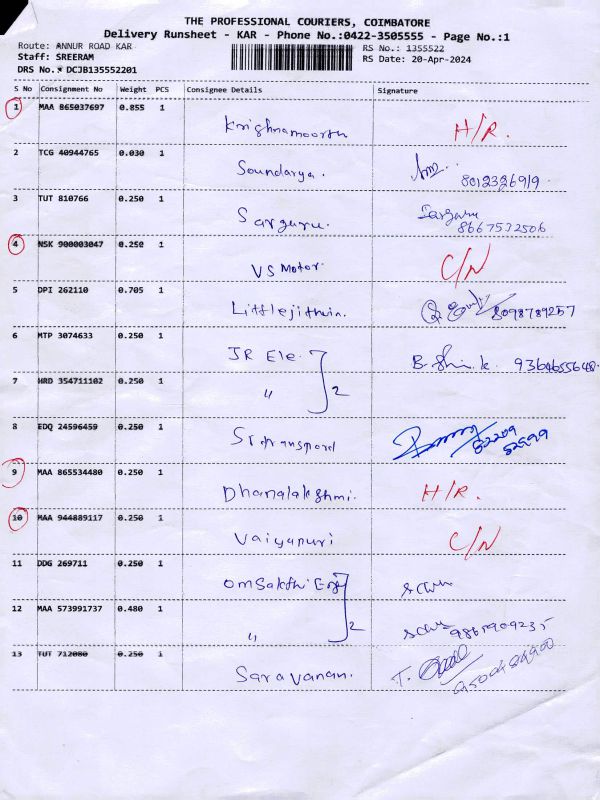 THE PROFESSIONAL COURIERS, COIMBATORE
Delivery Runsheet - KAR - Phone No.:0422-3505555 - Page No.:1
Route: ANNUR ROAD KAR
RS No.: 1355522
Staff: SREERAM
RS Date: 20-Apr-2024
DRS No.* DCJB135552201
S No Consignment No Weight PCS Consignee Details Signature
1 MAA 865037697 0.855 1
Krishnamoorth H/R.
2 TCG 40944765 0.030 1
Soundarya. 8012326919
3 TUT 810766 0.250 1
Sarguru. Sarguru
8667532506
4 NSK 900003047 0.250 1
VS Motor. C/N
5 DPI 262110 0.705 1
Littlejithin. 8098789257
6 MTP 3074633 0.250 1
JR Ele. 9364655648
7 HRD 354711102 0.250 1
" 2
8 EDQ 24596459 0.250 1
82209
52599
9 MAA 865534480 0.250 1
Dhanalakshmi. H/R.
10 MAA 944889117 0.250 1
Vaiyapuri C/N
11 DDG 269711 0.250 1
Omsakthi Eng
12 MAA 573991737 0.480 1
" 2
13 TUT 712080 0.250 1
Saravanan. T.